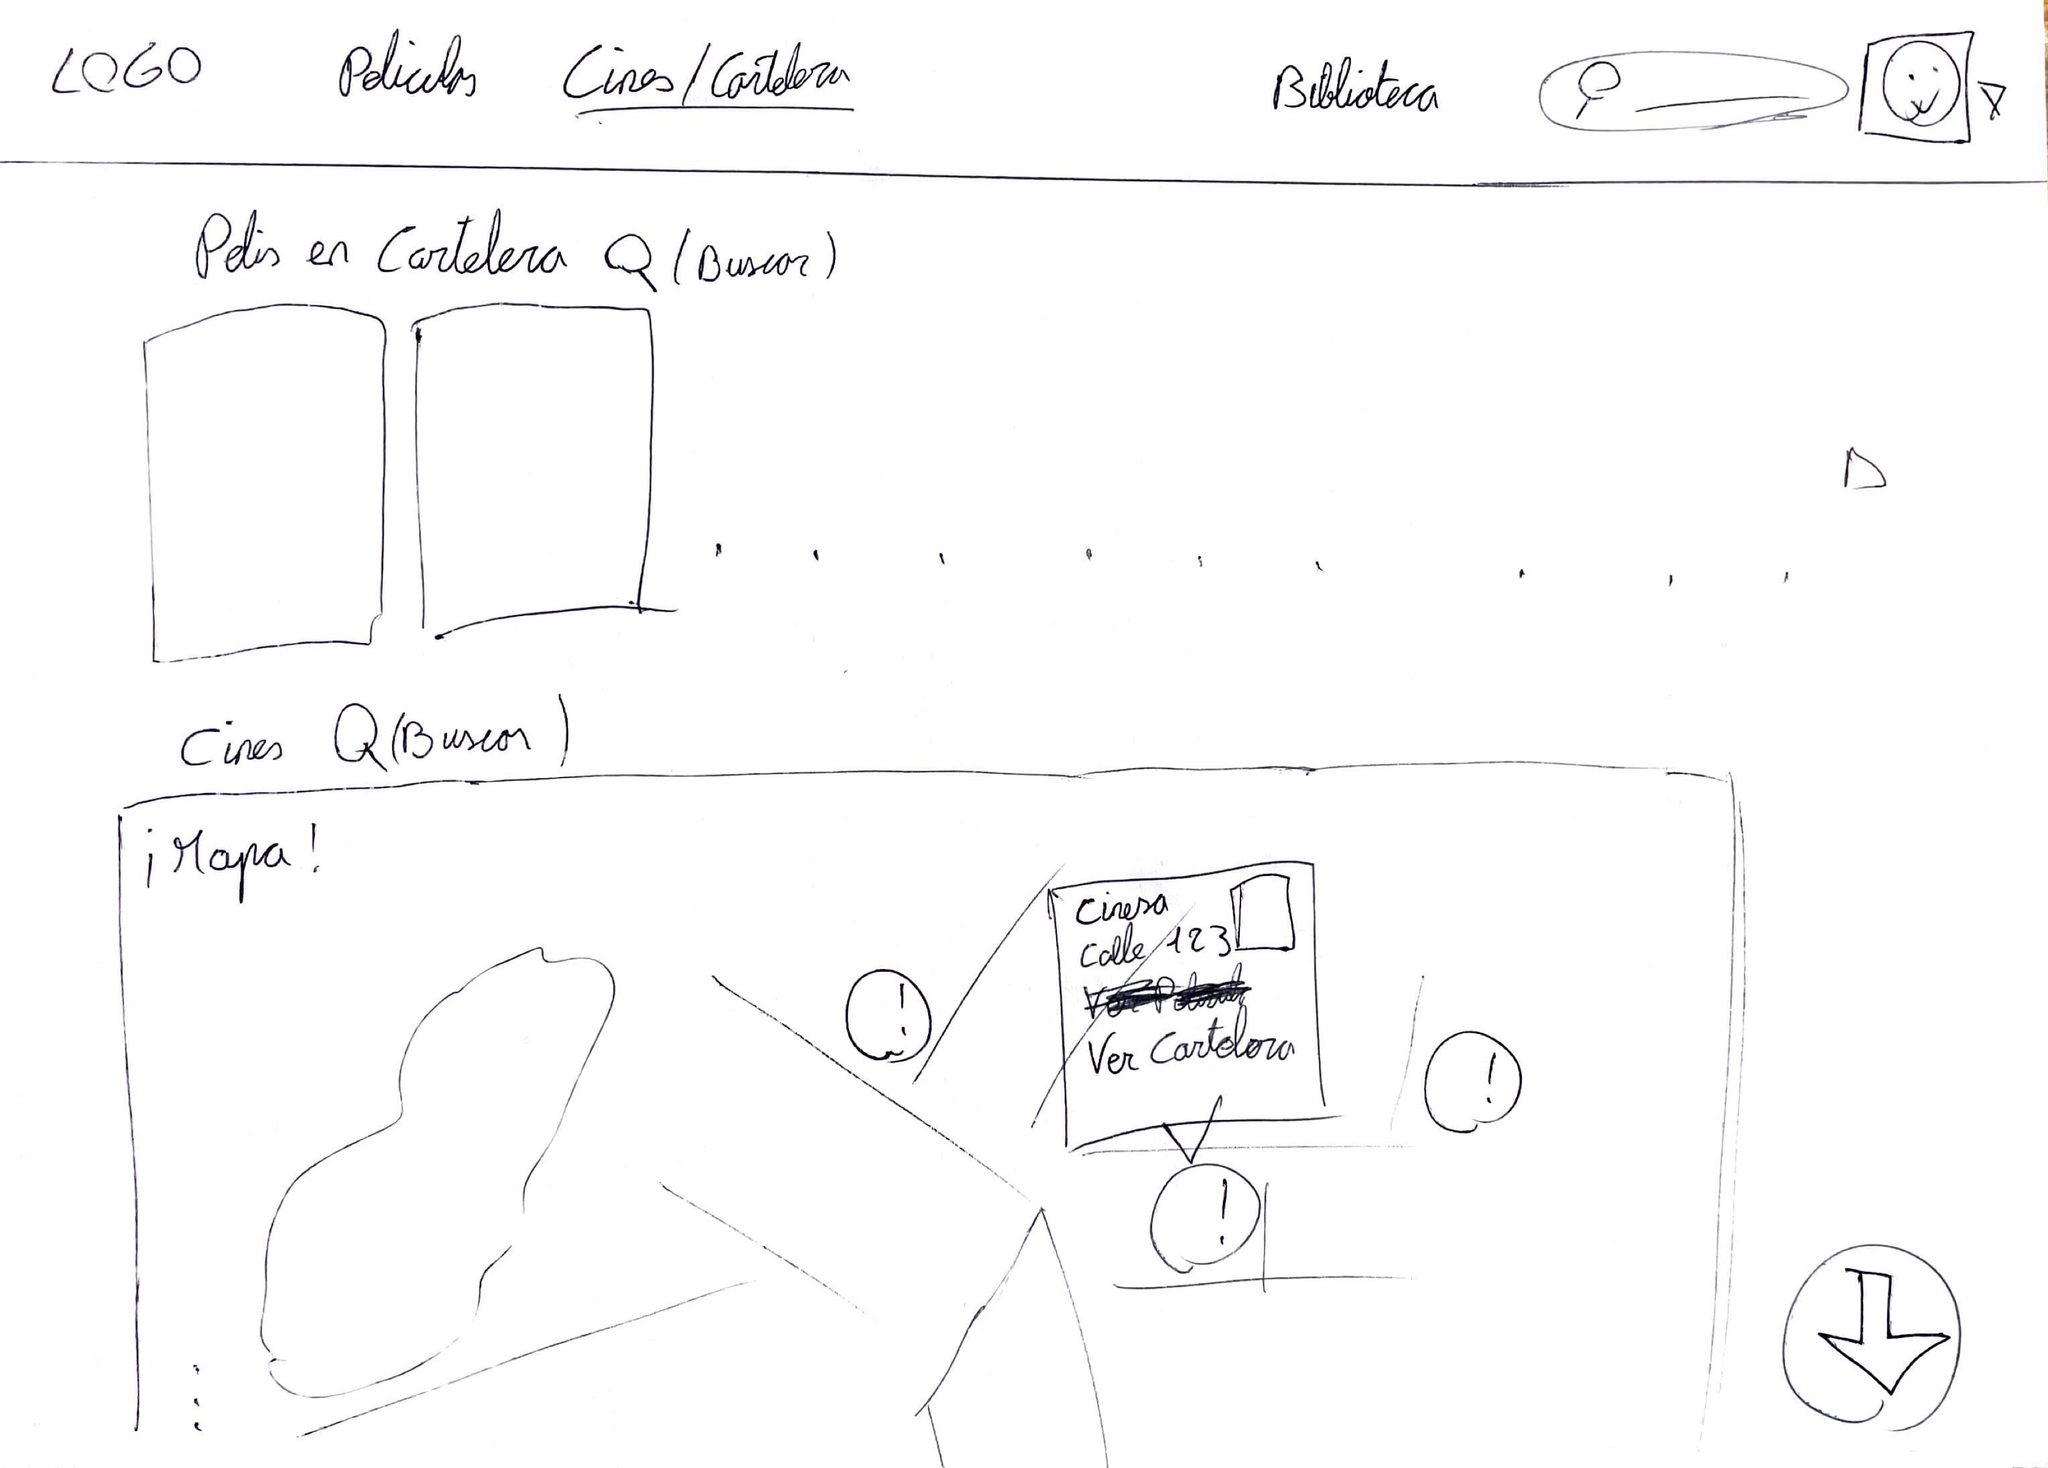 LOGO Peliculas Cines/Cartelera Biblioteca
Pelis en Cartelera (Buscar)
Cines (Buscar)
¡Mapa!
Cinesa
Calle 123
Ver Cartelera
!
!
!